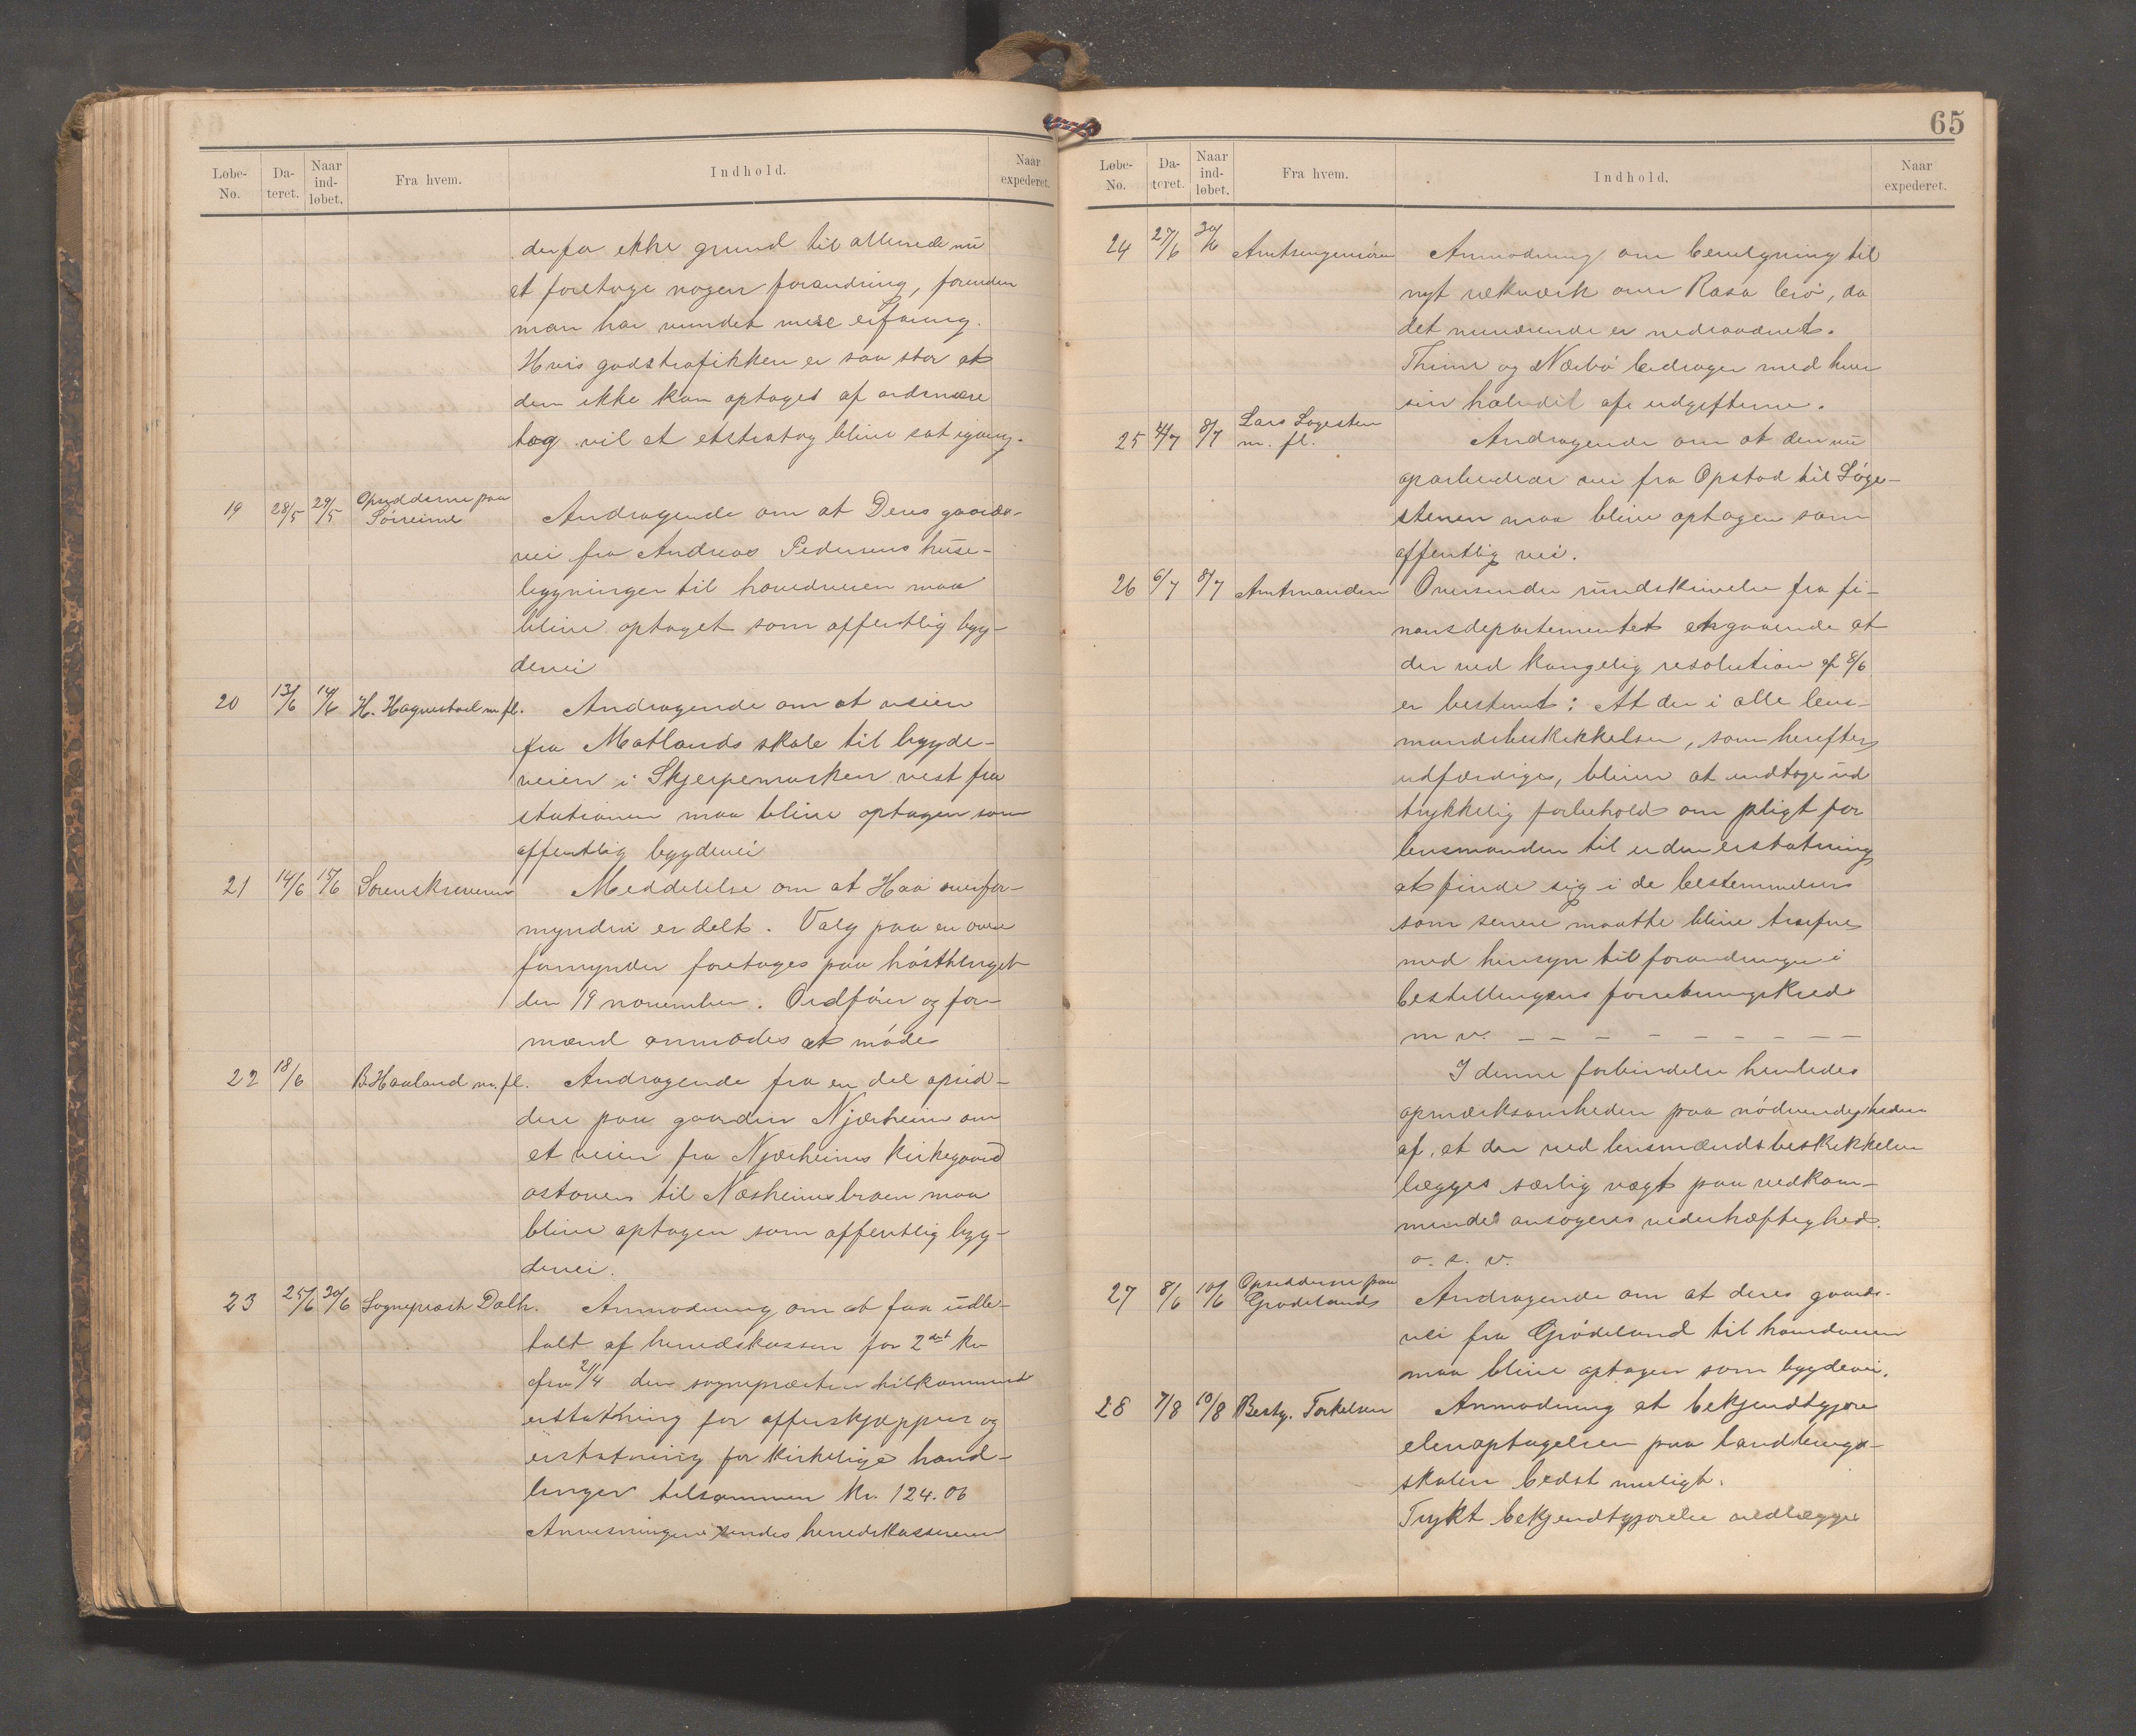 Løbe-No. Da-teret. Naar ind-løbet. Fra hvem. Indhold. Naar expederet.
derfor ikke grund til allerede nu
at foretage nogen forandring, forinden
man har vundet mere erfaring.
Hvis godstrafikken er saa stor at
den ikke kan optages af ordinære
tog vil et ekstratog blive sat igang.
19 28/5 29/5 Opsidderne paa Sørreime Andragende om at Deres gaards-
vei fra Andreas Pedersens huse-
bygninger til hovedveien maa
blive optaget som offentlig byg-
devei
20 13/6 14/6 H. Hognestad m. fl. Andragende om at veien
fra Motlands skole til bygde-
veien i Skjerpemarken vest fra
stationen maa blive optagen som
offentlig bygdevei
21 14/6 15/6 Sorenskriveren Meddelelse om at Haa overfor-
mynderi er delt. Valg paa en over
formynder foretages paa høstthinget
den 19 november. Ordfører og for-
mænd anmodes at møde
22 18/6 B. Haaland m. fl. Andragende fra en del opsid-
dere paa gaarden Njærheim om
at veien fra Njærheims kirkegaard
østover til Næsheimsbroen maa
blive optagen som offentlig byg-
devei.
23 25/6 30/6 Sogneprest Dalh. Anmodning om at faa udbe-
talt af herredskassen for 2det kv
fra 2/4 den sognepræsten tilkommende
erstatning for offerskjæpper og
erstatning for kirkelige hand-
linger tilsammen kr. 124.06
Anvisningen sendes herredskassereren
65
Løbe-No. Da-teret. Naar ind-løbet. Fra hvem. Indhold. Naar expederet.
24 27/6 30/6 Amtsingeniøren Anmodning om bevilgning til
nyt rækværk over Rasa bro, da
det nuværende er nedraadnet.
Thime og Nærbø bidrager med hver
sin halvdel af udgifterne.
25 4/7 8/7 Lars Søgesten m. fl. Andragende om at den nu
oparbeidede vei fra Opstad til Søge-
stenen maa blive optagen som
offentlig vei.
26 6/7 8/7 Amtmanden Oversender rundskrivelse fra fi-
nansdepartementet angaaende at
der ved kongelig resolution af 8/6
er bestemt: At der i alle lens-
mandsbeskikkelser, som herefter
udfærdiges, bliver at indtage ud
trykkelig forbehold om pligt for
lensmanden til uden erstatning
at finde sig i de bestemmelser
som senere maatte blive trufne
med hensyn til forandringer i
bestillingens forretningskreds
m v. — — — — — — — —
I denne forbindelse henledes
opmærksomheden paa nødvendigheden
af, at der ved lensmændsbeskikkelser
lægges særlig vægt paa vedkom-
mende ansøgeres vederhæftighed.
o. s. v.
27 8/6 10/6 Opsidderne paa Grødeland Andragende om at deres gaards-
vei fra Grødeland til hovedveien
maa blive optagen som bygdevei.
28 7/8 10/8 Besty. Torkelsen Anmodning at bekjendtgjøre
elevoptagelsen paa landbrugs-
skolen bedst muligt.
Trykt bekjendtgjørelse vedlægges